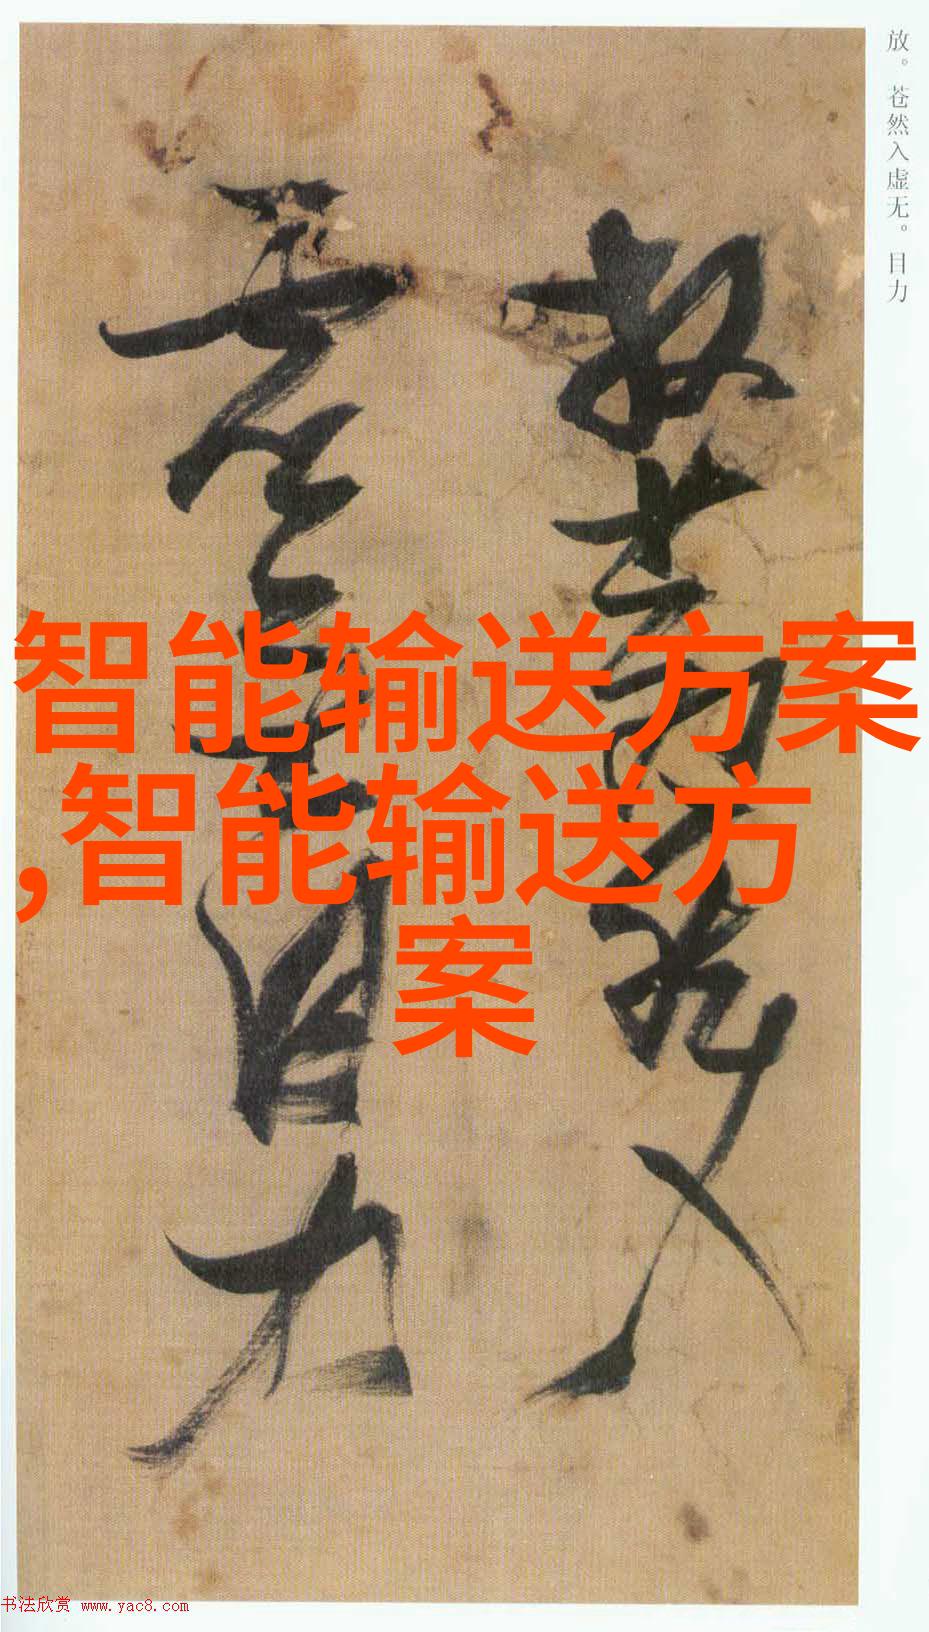 放。苍然入虚无。目力
放苍然入
虚无目力
智能输送方案
,智能输送方
案
书法欣赏 www.yac8.com